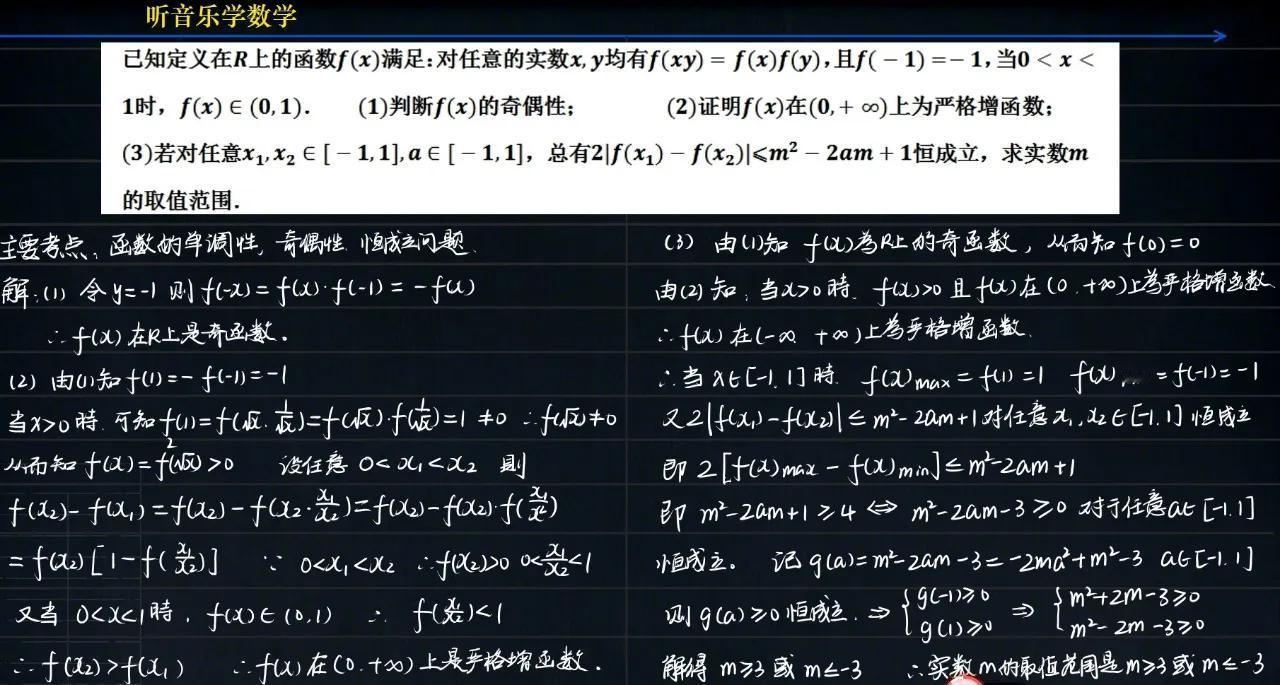 听音乐学数学
已知定义在R上的函数f(x)满足:对任意的实数x, y均有f(xy) = f(x)f(y),且f( − 1) = − 1,当0 < x <
1时, f(x) ∈ (0, 1). (1)判断f(x)的奇偶性; (2)证明f(x)在(0, + ∞)上为严格增函数;
(3)若对任意x₁, x₂ ∈ [ − 1, 1], a ∈ [ − 1, 1], 总有2|f(x₁) − f(x₂)|⩽m² − 2am + 1恒成立, 求实数m
的取值范围.
主要考点: 函数的单调性, 奇偶性. 恒成立问题.
解:(1) 令y=-1 则f(-x)=f(x)·f(-1)=-f(x)
∴f(x)在R上是奇函数.
(2) 由(1)知f(1)=-f(-1)=-1
当x>0時. 可知f(1)=f(√x·1/√x)=f(√x)·f(1/√x)=1≠0 ∴f(√x)≠0
从而知 f(x)=f²(√x)>0 设任意 0<x₁<x₂ 则
f(x₂)-f(x₁)=f(x₂)-f(x₂·x₁/x₂)=f(x₂)-f(x₂)·f(x₁/x₂)
=f(x₂)[1-f(x₁/x₂)] ∵ 0<x₁<x₂ ∴f(x₂)>0 0<x₁/x₂<1
又当 0<x<1時, f(x)∈(0,1) ∴ f(x₁/x₂)<1
∴f(x₂)>f(x₁) ∴f(x)在(0,+∞)上是严格增函数.
(3) 由(1)知 f(x)为R上的奇函数, 从而知f(0)=0
由(2)知, 当x>0時. f(x)>0 且f(x)在(0,+∞)上為严格增函数
∴f(x)在(-∞,+∞)上為严格增函数.
∴当x∈[-1,1]時. f(x)max=f(1)=1 f(x) =f(-1)=-1
又2|f(x₁)-f(x₂)|≤m²-2am+1对任意x₁,x₂∈[-1,1]恒成立
即 2[f(x)max-f(x)min]≤m²-2am+1
即 m²-2am+1≥4 ⇔ m²-2am-3≥0 对于任意a∈[-1,1]
恒成立. 记g(a)=m²-2am-3=-2ma²+m²-3 a∈[-1,1]
则g(a)≥0恒成立. ⇒ {g(-1)≥0 g(1)≥0 ⇒ {m²+2m-3≥0 m²-2m-3≥0
解得 m≥3 或 m≤-3 ∴实数m的取值范围是m≥3或m≤-3